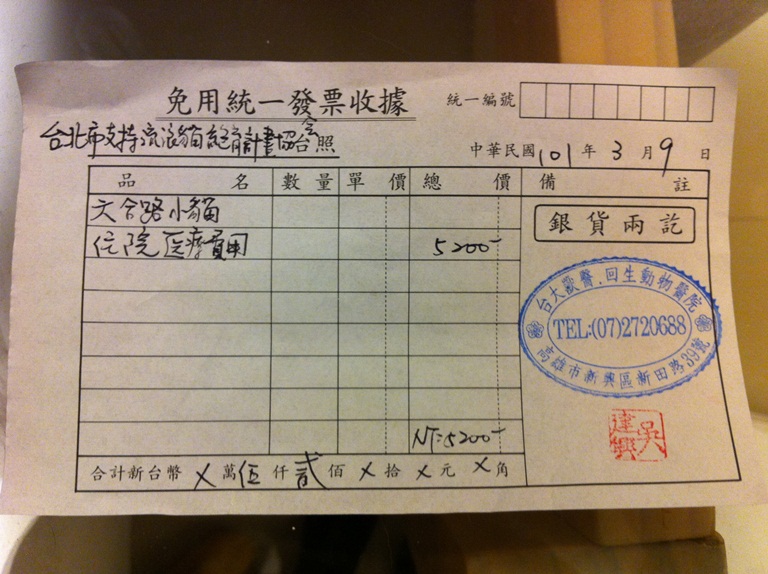 免用統一發票收據
統一編號
台北市支持流浪貓絕育計畫協會 台照
中華民國 101 年 3 月 9 日
品名 數量 單價 總價 備註
六合路小貓
住院医療費用 5200-
銀貨兩訖
台大獸醫.回生動物醫院
TEL:(07)2720688
高雄市新興區新田路39號
吳達興
NT:5200-
合計新台幣 X 萬 伍 仟 貳 佰 X 拾 X 元 X 角